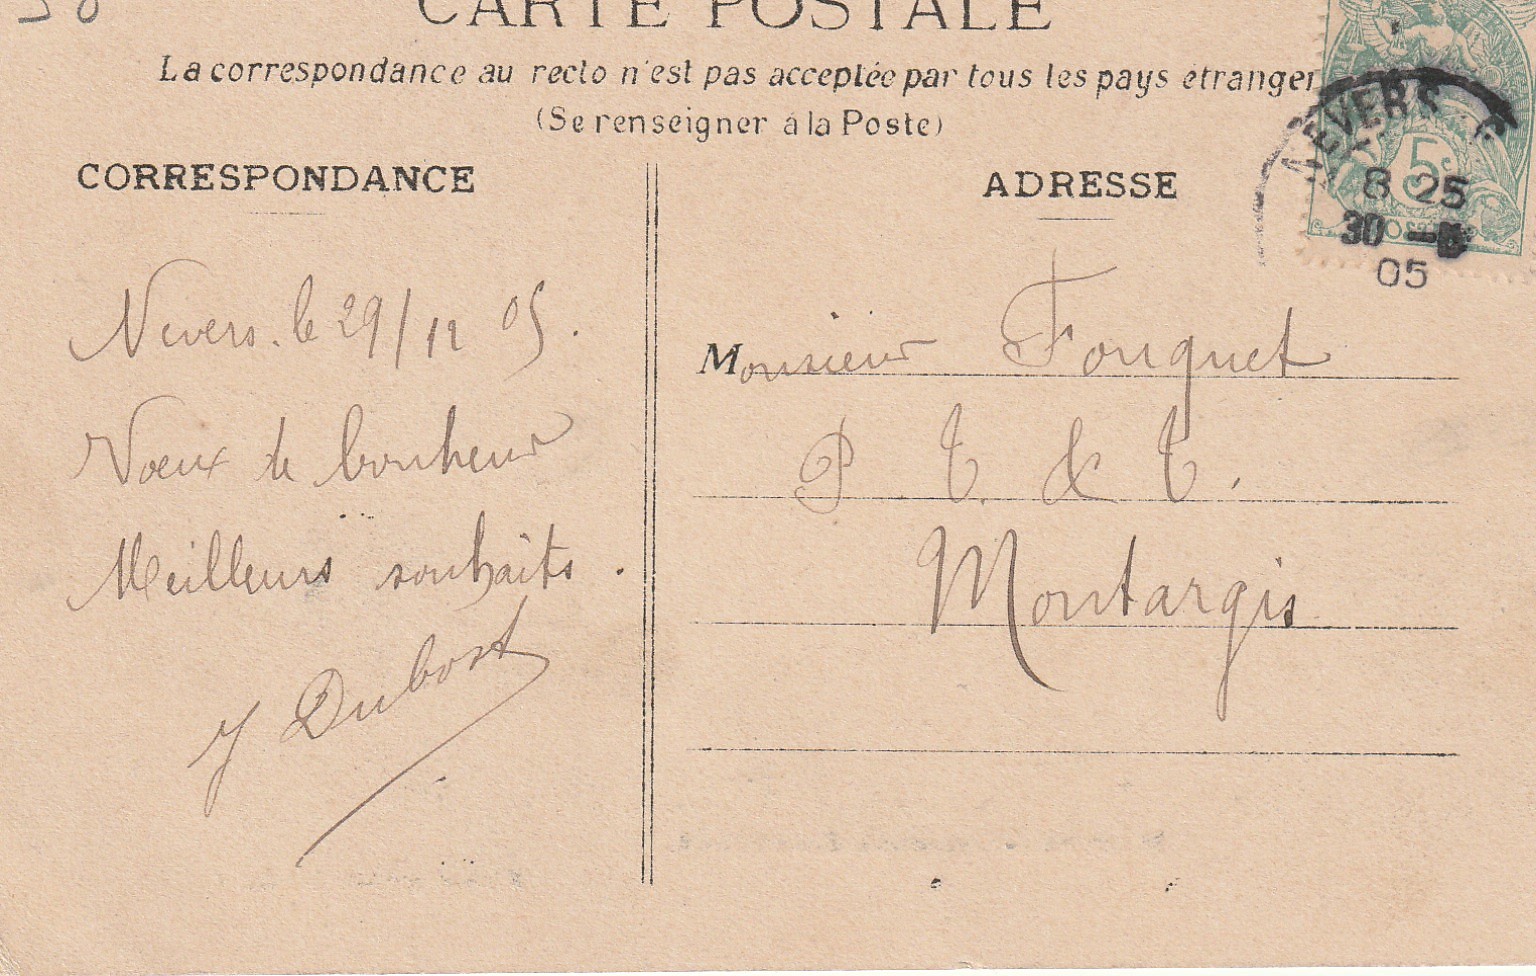 58
CARTE POSTALE
La correspondance au recto n'est pas acceptée par tous les pays étranger
(Se renseigner à la Poste)
CORRESPONDANCE
Nevers. le 29/12 05.
Voeux de bonheur
Meilleurs souhaits.
J Dubost
ADRESSE
Monsieur Fouquet
P. T. & T.
Montargis
NEVERS
8 25
30
05
5c